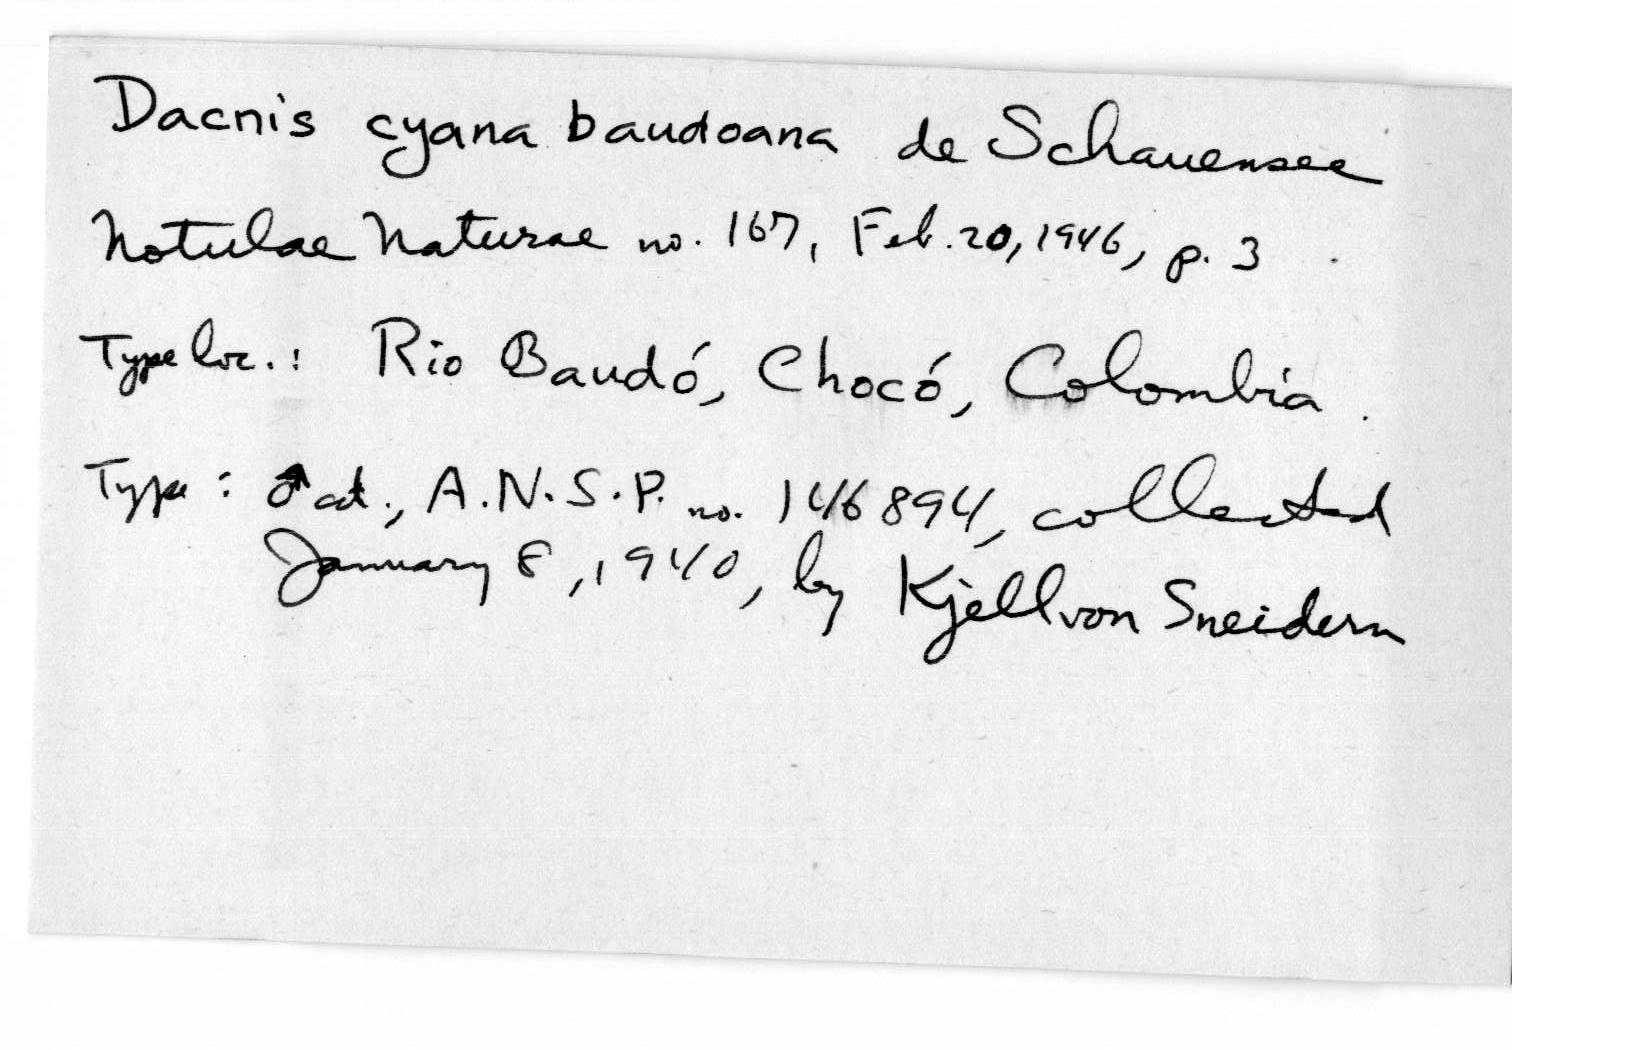 Dacnis cyana baudoana de Schauensee
Notulae Naturae no. 167, Feb. 20, 1946, p. 3
Type loc.: Rio Baudó, Chocó, Colombia.
Type: ♂ ad., A.N.S.P. no. 146894, collected
January 8, 1940, by Kjell von Sneidern